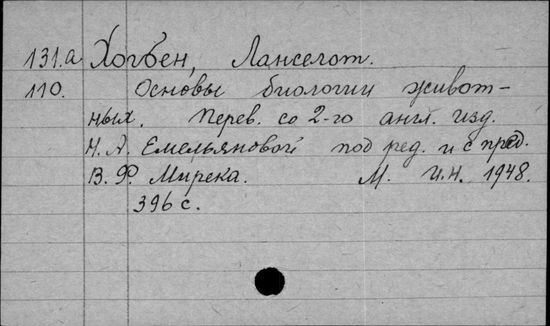 131.а Хогбен, Ланселот.
110. Основы биологии живот-
ных. Перев. со 2-го англ. изд.
Н. А. Емельяновой под ред. и с пред.
В. Ф. Мирека. М. И.Н. 1948.
396 с.